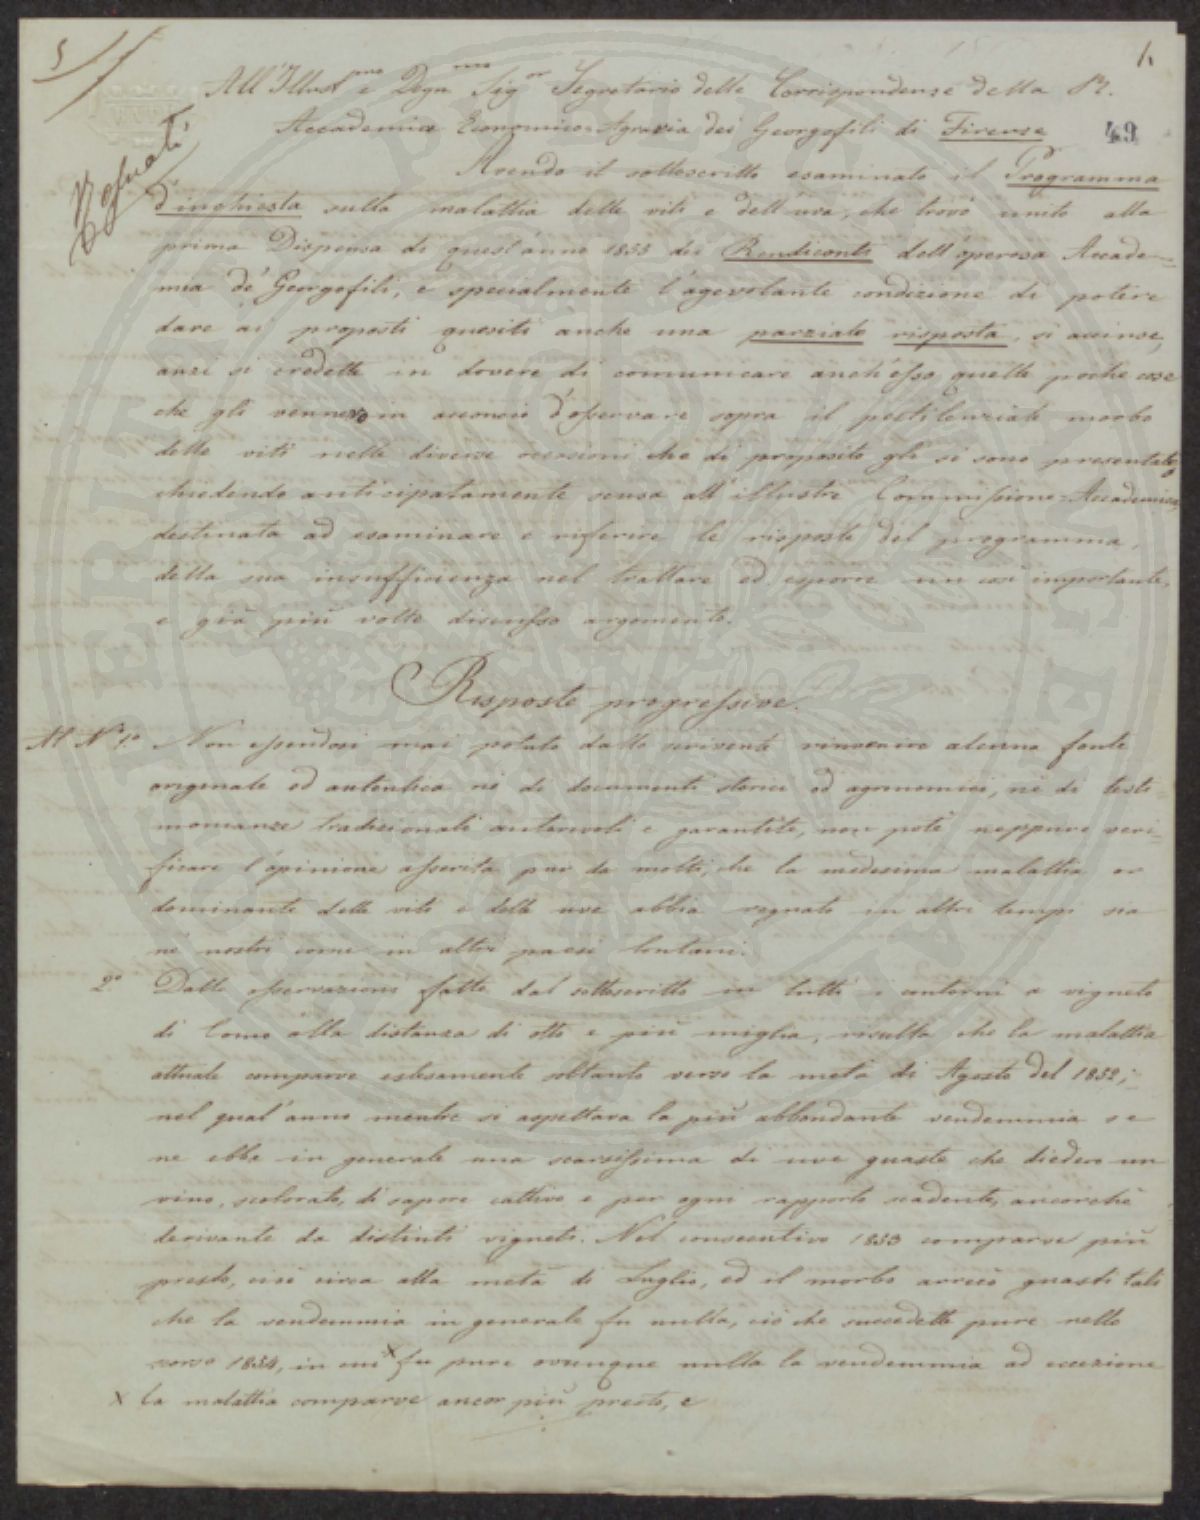 5
1.
All'Illust.mo e Degn.mo Sig.or Segretario delle Corrispondenze della R.
Accademia Economico-Agraria dei Georgofili di Firenze
49
Avendo il sottoscritto esaminato il Programma
d'inchiesta sulla malattia delle viti e dell'uva, che trovò unito alla
prima Dispensa di quest'anno 1855 dei Rendiconti dell'operosa Accade-
mia de' Georgofili, e specialmente l'agevolante condizione di potere
dare ai proposti quesiti anche una parziale risposta, si accinse,
anzi si credette in dovere di comunicare anch'esso quelle poche cose
che gli vennero in acconcio d'osservare sopra il pestilenziale morbo
delle viti nelle diverse occasioni che di proposito gli si sono presentate,
chiedendo anticipatamente scusa all'illustre Commissione Accademica,
destinata ad esaminare e riferire le risposte del programma,
della sua insufficienza nel trattare ed esporre un così importante,
e già più volte discusso argomento.
Risposte progressive.
Al N.º 1.º Non essendosi mai potuto dallo scrivente rinvenire alcuna fonte
originale ed autentica nè di documenti storici od agronomici, nè di testi-
monianze tradizionali autorevoli e garantite, non potè neppure veri-
ficare l'opinione asserita pur da molti, che la medesima malattia or
dominante delle viti e delle uve abbia regnato in altri tempi sia
nè nostri come in altri paesi lontani.
2.º Dalle osservazioni fatte dal sottoscritto in tutti i contorni a vigneto
di Como alla distanza di otto e più miglia, risulta che la malattia
attuale comparve estesamente soltanto verso la metà di Agosto del 1852;
nel qual'anno mentre si aspettava la più abbondante vendemmia se
ne ebbe in generale una scarsissima di uve guaste che diedero un
vino, scolorato, di sapore cattivo e per ogni rapporto scadente, ancorchè
derivante da distinti vigneti. Nel consecutivo 1853 comparve più
presto, cioè circa alla metà di Luglio, ed il morbo arrecò guasti tali
che la vendemmia in generale fu nulla, ciò che succedette pure nello
scorso 1854, in cui x fu pure ovunque nulla la vendemmia ad eccezione
x la malattia comparve ancor più presto, e